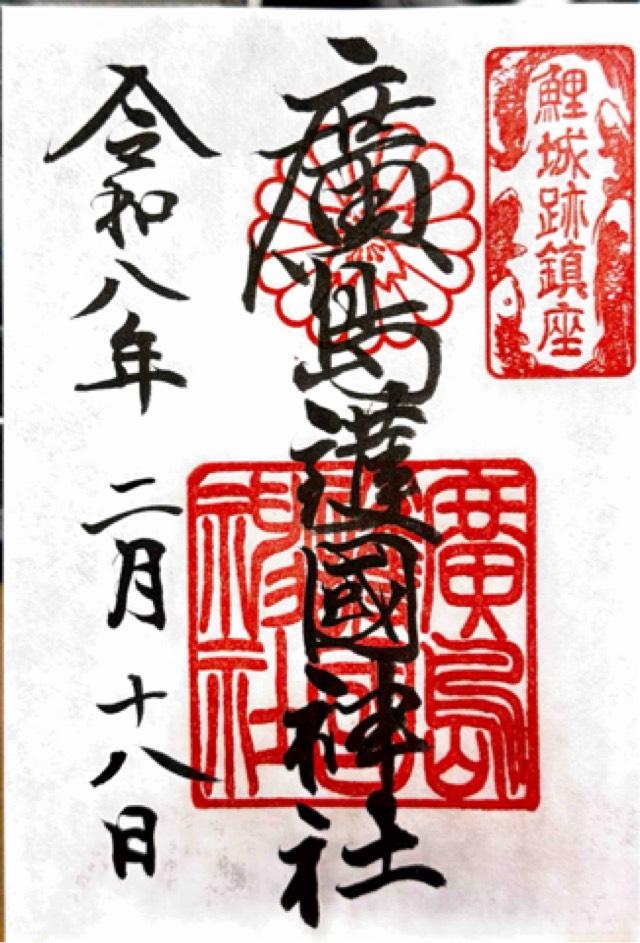 鯉城跡鎮座
廣島護國神社
廣島護國神社
令和八年 二月 十八日